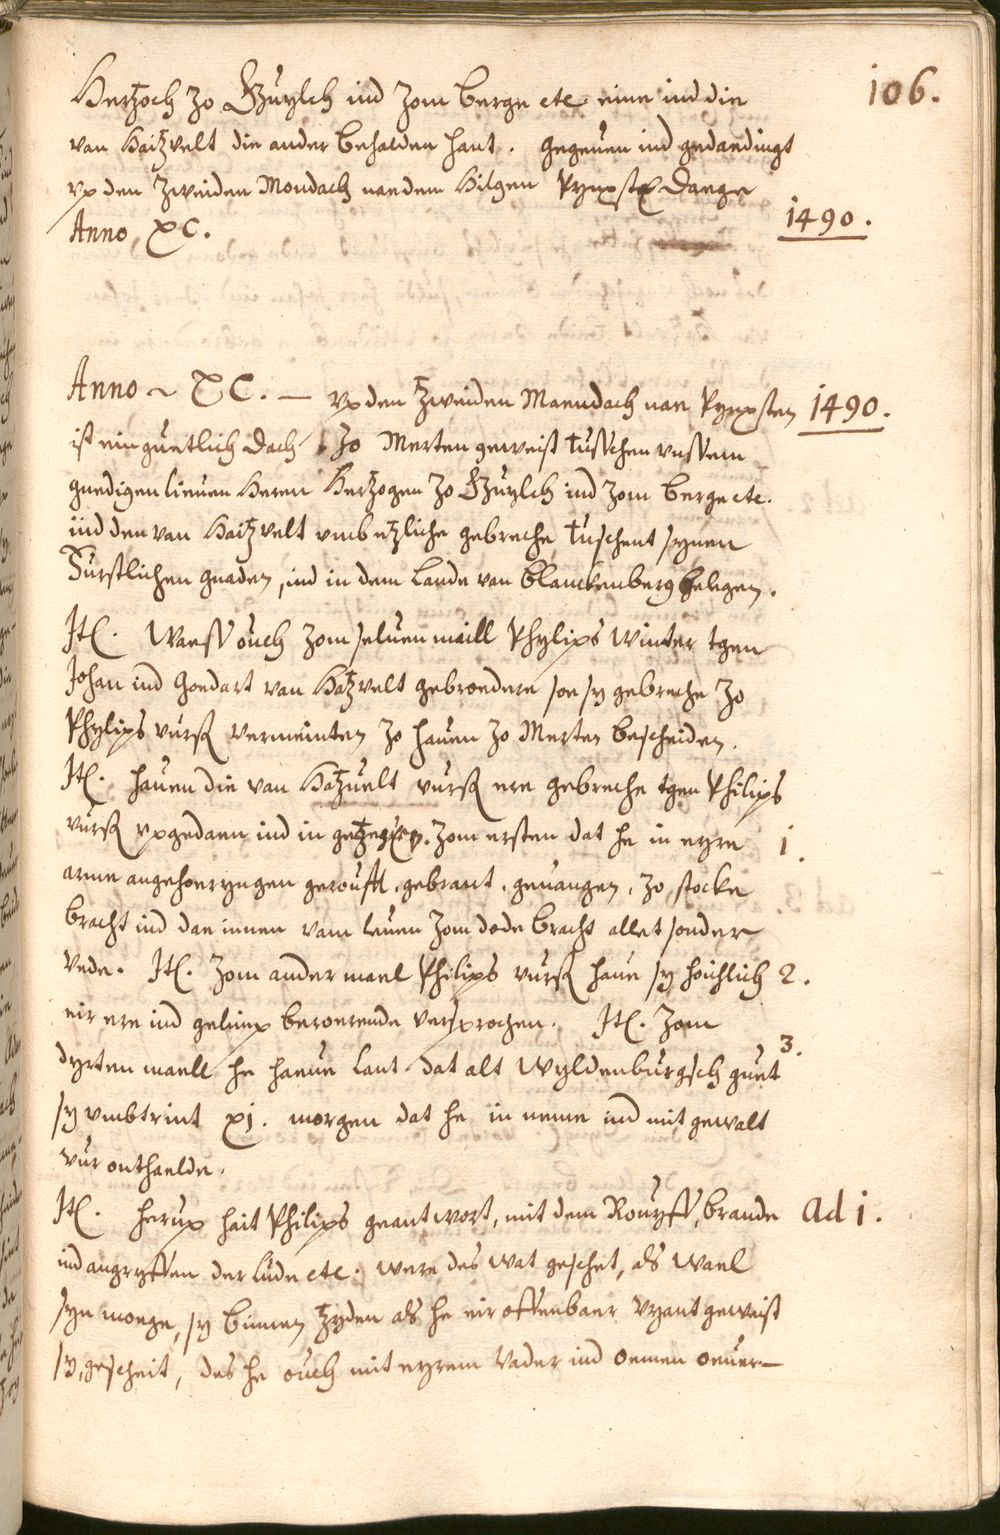 106.
Hertzoch zo Guylch ind zom Berge etc eine ind die
van Haitzvelt die ander behalden hant. Gegeuen ind gedaedingt
vp den zweiden Mondach naedem hilgen Pynxst Daege
Anno XC. 1490.
Anno XC. — vp den tzweiden Maendach nae Pynxsten 1490.
ist ein guetlich dach zo Merten geweist tusschen vnssem
gnedigen lieuen Heren Hertzogen zo Guylch ind zom Berge etc.
ind den van Haitzvelt vmb etzliche gebreche tuschent synen
Furstlichen gnaden, ind in dem Lande van Blanckenberg gelegen.
Jt. Waess ouch zom seluen maill Phylips Winter tgen
Johan ind Goedart van Hatzvelt gebroedere soe sy gebreche zo
Phylips vurß vermeinten zo hauen zo Merten bescheiden.
Jt. hauen die van Hatzuelt vurß ere gebreche tgen Philips
vurß vpgedaen ind in getzegen. Zom ersten dat he in eyre 1.
arme angehoeryngen gerouft, gebrant, geuangen, zo stocke
bracht ind dae innen vam leuen zom dode bracht allet sonder
vede. Jt. Zom ander mael Philips vurß haue sy hoichlich 2.
eir ere ind gelimp beroerende versprochen. Jt. Zom
dyrten maell he haeue lant dat alt Wyldenburgsch guet 3.
sy vmbtrint xj. morgen dat he in neme ind mit gewalt
vur onthaelde.
Jt. herup hait Philips geantwort, mit dem Rouyff, brande ad 1.
ind angryffen der lude etc. were des wat geschet, als wael
syn moege, sy binnen tzyden als he eir offenbaer vyant geweist
sy, gescheit, des he ouch mit eyrem Vader ind oemen oeuer-